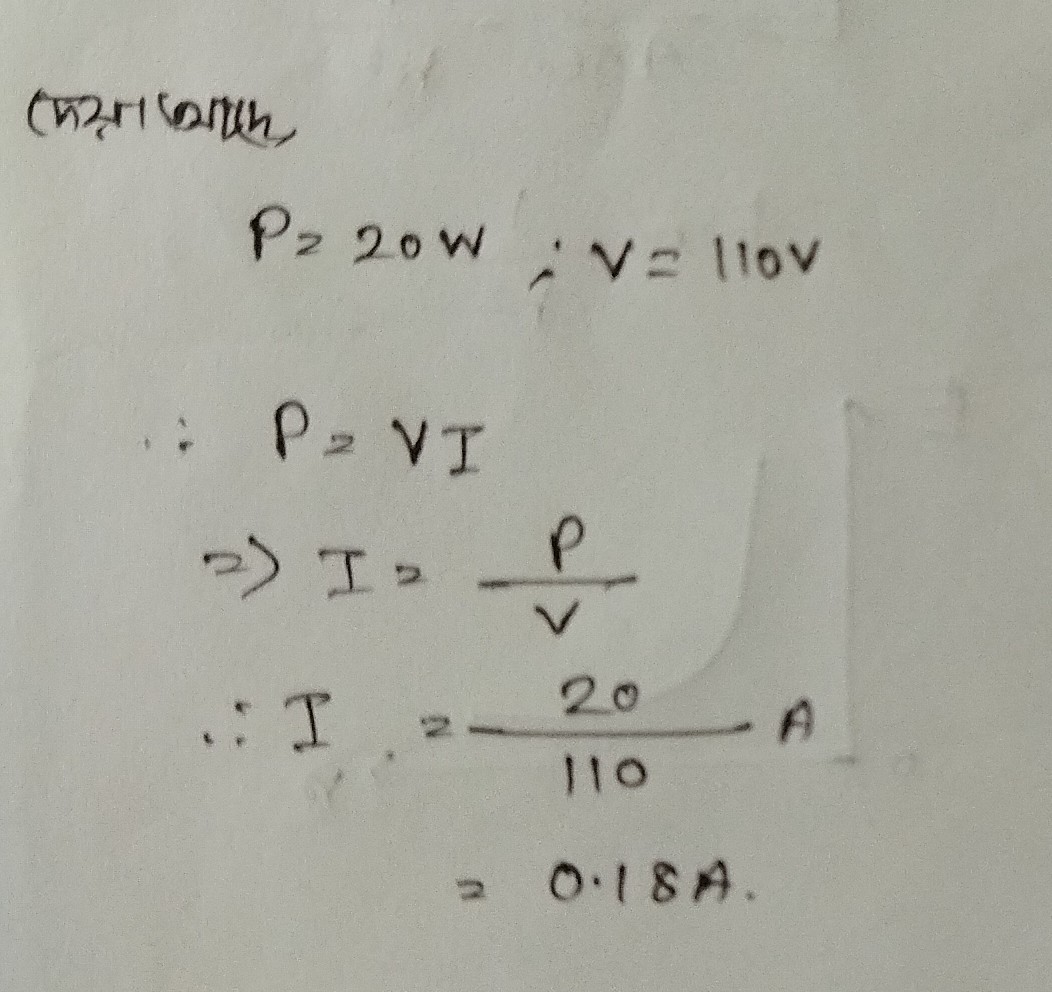 দেয়া আছে,
P = 20W ; V = 110V
∴ P = VI
=> I = P/V
∴ I = 20/110 A
= 0.18A.